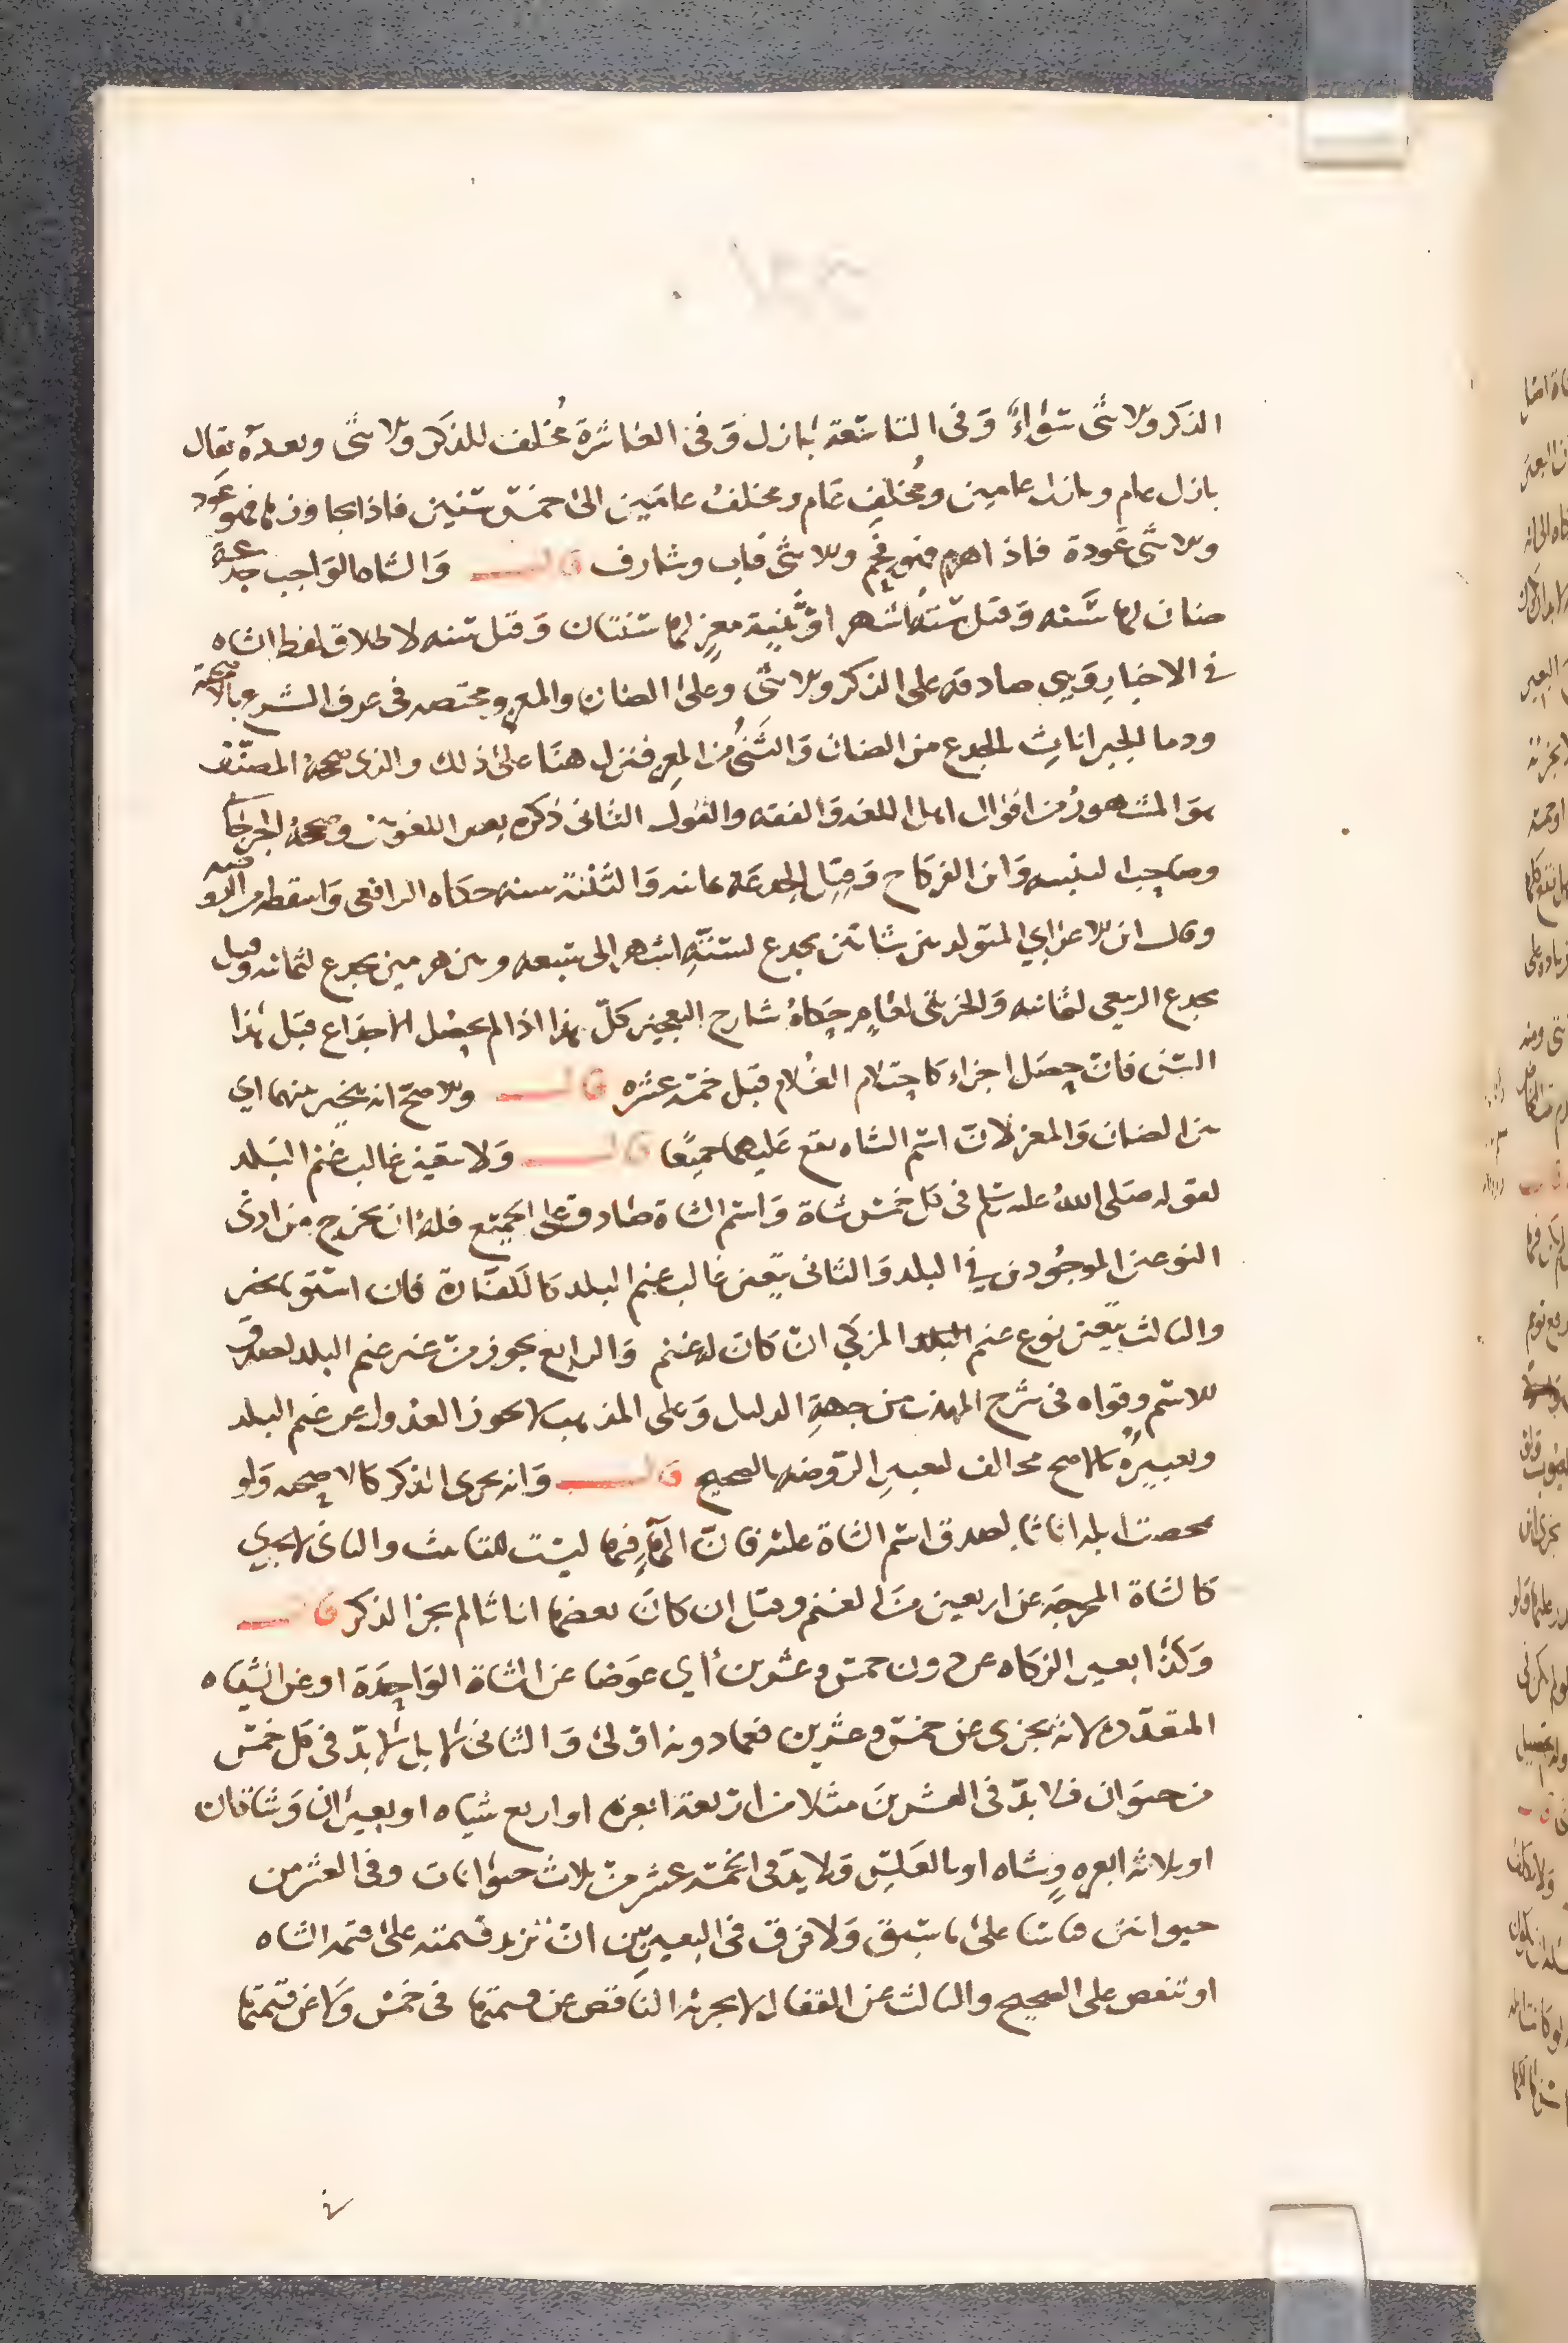 الذكر والانثى سواء وفى التاسعة بازل وفى العاشرة مخلف للذكر والانثى وبعده يقال
بازل عام وبازل عامين ومخلف عام ومخلف عامين الى خمس سنين فاذا جاوزها فهو عود
والانثى عودة فاذا هرم فهو قحم والانثى ناب وشارف قال والشاه الواجب جدعة
ضان لها سنه وقيل ستة اشهر او ثنية معز لها سنتان وقيل سنه لاطلاق لفظ الشاه
فى الاخبار وهى صادقه على الذكر والانثى وعلى الضان والمعز ومختصه فى عرف الشرع بالاضحية
ودما الجبرانات بالجدع من الضان والثنى من المعز فنزل هنا على ذلك والذى صححه المصنف
هو المشهور من اقوال اهل اللغه والفقه والقول الثانى ذكره بعض اللغويين وصححه الجرجانى
وصاحب التنبيه وابن الفركاح وقيل الجدعة ما له والثنية سنه حكاه الرافعى واسقطه من الروضه
وقال ابن الاعرابي المتولد بين شابين يجدع لستة اشهر الى سبعه وبين هرمين يجدع لثمانيه وقيل
يجدع الربعى لثمانيه والخريفى لعام حكاه شارح التعجيز كل هذا اذا لم يحصل الاجذاع قبل هذا
السن فان حصل اجزاء كاحتلام الغلام قبل خمسة عشره قال والاصح انه يخير بينهما اي
بين الضان والمعز لان اسم الشاه يقع عليهما جميعا قال ولا يتعين غالب غنم البلد
لقوله صلى الله عليه وسلم فى كل خمس شاة واسم الشاة صادق على الجميع فله ان يخرج من ادنى
النوعين الموجودين في البلد والثانى يتعين غالب غنم البلد كالكفارة فان استوتا تخير
والثالث يتعين نوع غنم المزكي ان كان له غنم والرابع يجوز من غير غنم البلد لصدق
الاسم وقواه فى شرح المهذب من جهة الدليل وعلى المذهب لا يجوز العدول عن غنم البلد
وتعبيره بالاصح مخالف لتعبير الروضه بالصحيح قال وانه يجزى الذكر كالاضحيه ولو
تمحضت ابله اناثا لصدق اسم الشاة عليه فان الهاء فيها ليست للتانيث والثانى لا يجزي
كالشاة المخرجة عن اربعين من الغنم وقيل ان كان بعضها اناثا لم يجز الذكر قال
وكذا بعير الزكاه عن دون خمس وعشرين اي عوضا عن الشاة الواحدة او عن الشياه
المتعدده لانه يجزى عن خمس وعشرين فعما دونه اولى والثانى لا بل لا بد فى كل خمس
من حيوان فلا بد فى العشرين مثلا من اربعة ابعره او اربع شياه او بعيران وشاتان
او بلاثه ابعره وشاه او بالعكس ولا بد فى الخمسه عشر من بلاث حيوانات وفى العشر من
حيوانين قياسا على ما سبق ولا فرق فى البعير بين ان تزيد قيمته على قيمه الشاه
او تنقص على الصحيح والثالث عن القفال لا يجزئ الناقص عن قيمتها فى خمس ولا عن قيمتها